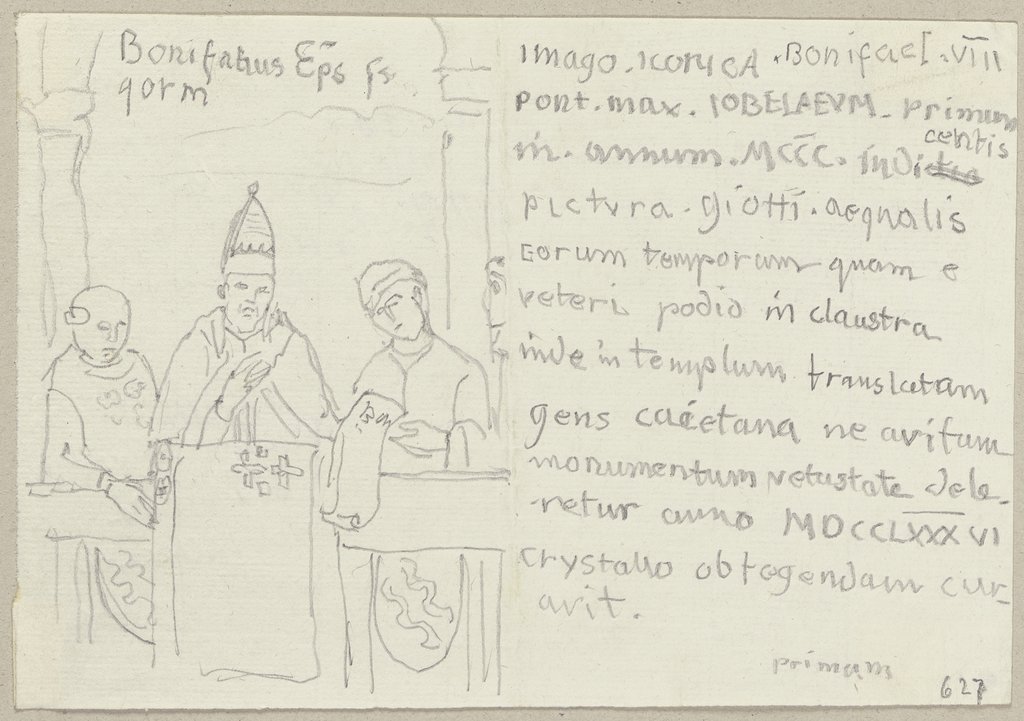 Bonifatius Ēps ſs
qorm
Imago. Iconica. BonifacI. VIII
pont. max. IOBELAEVM. primum
in. annum. MCCC. Indicentis
pictura. giottī. aequalis
eorum temporum quam e
veteri podio in claustra
inde in templum translatam
gens caietana ne avitum
monumentum vetustate dele-
-retur anno MDCCLXXXVI
Crystallo obtegendam cur_
avit.
Bon
primam
627